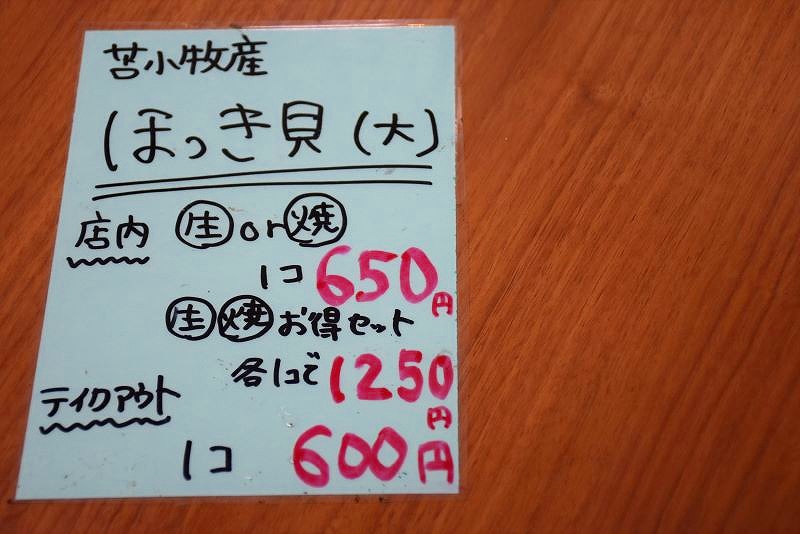 苫小牧産
ほっき貝(大)
店内 生or焼
1コ 650円
生焼お得セット
各1コで1250円
テイクアウト
1コ 600円